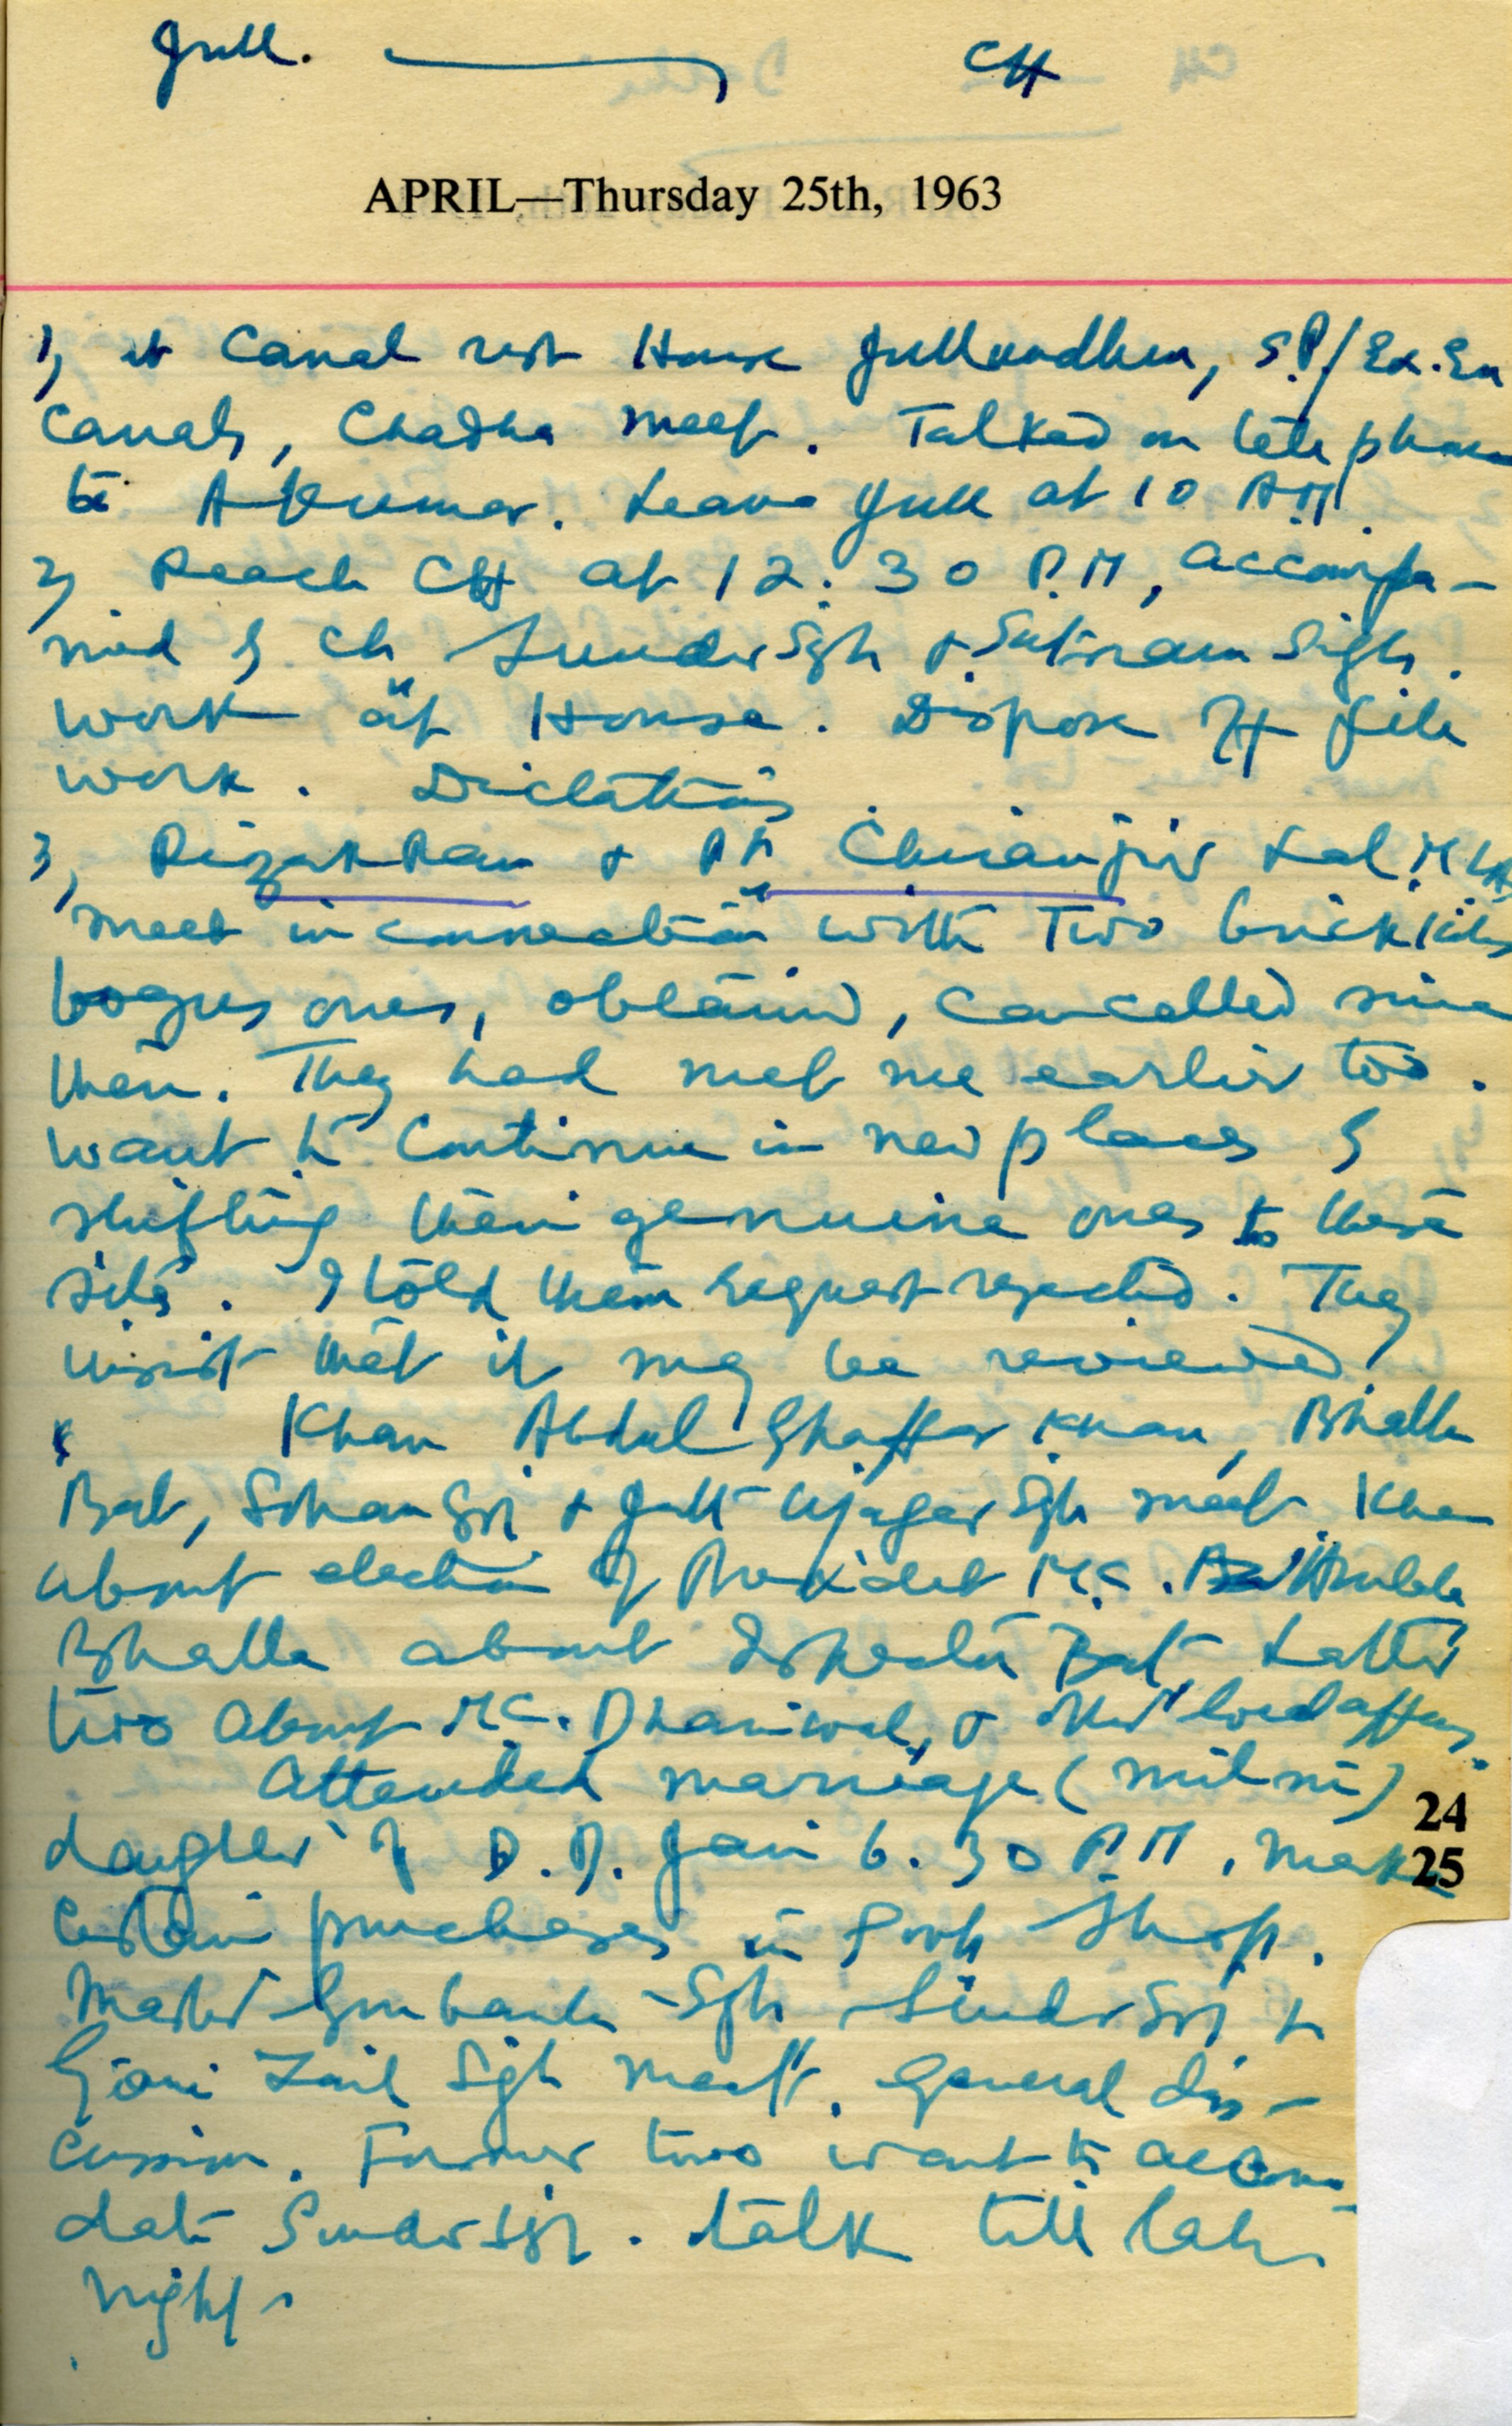 Jull. CH
APRIL—Thursday 25th, 1963
1, at Canal rest House Jullundhur, S.P./Ex.En
Canals, Chadha meet. Talked on telephone
to A Kumar. Leave Jull at 10 AM.
2, Reach CH at 12.30 P.M, accompa-
nied by Ch Sunder Sgh & Satnam Sigh.
work at House. Dispose off file
work. Dictations.
3, Rizak Ram & Pt Chiranjiv Lal MLA
meet in connection with Two brick kilns
bogus ones, obtained, cancelled since
then. They had met me earlier too.
want to continue in new places by
shifting their genuine ones to these
sites. I told them request rejected. They
insist that it may be reviewed.
Khan Abdul Ghaffar Khan, Bhalla
Bat, Sohan Sgh & Jath Ujagar Sgh meet. Khan
about election of President M.C. Ambala
Bhalla about Bat Latter
two about M.C. Dhariwal, & other local affairs.
Attended marriage (milni)
daughter of D.D. Jain 6.30 P.M, make
24
25
certain purchases in Govt Shop.
Master Gurbanta Sgh Sunder Sgh &
Giani Zail Sgh meet. General dis-
cussion. Former two want to accomo-
date Sunder Sgh. talk till late
night.